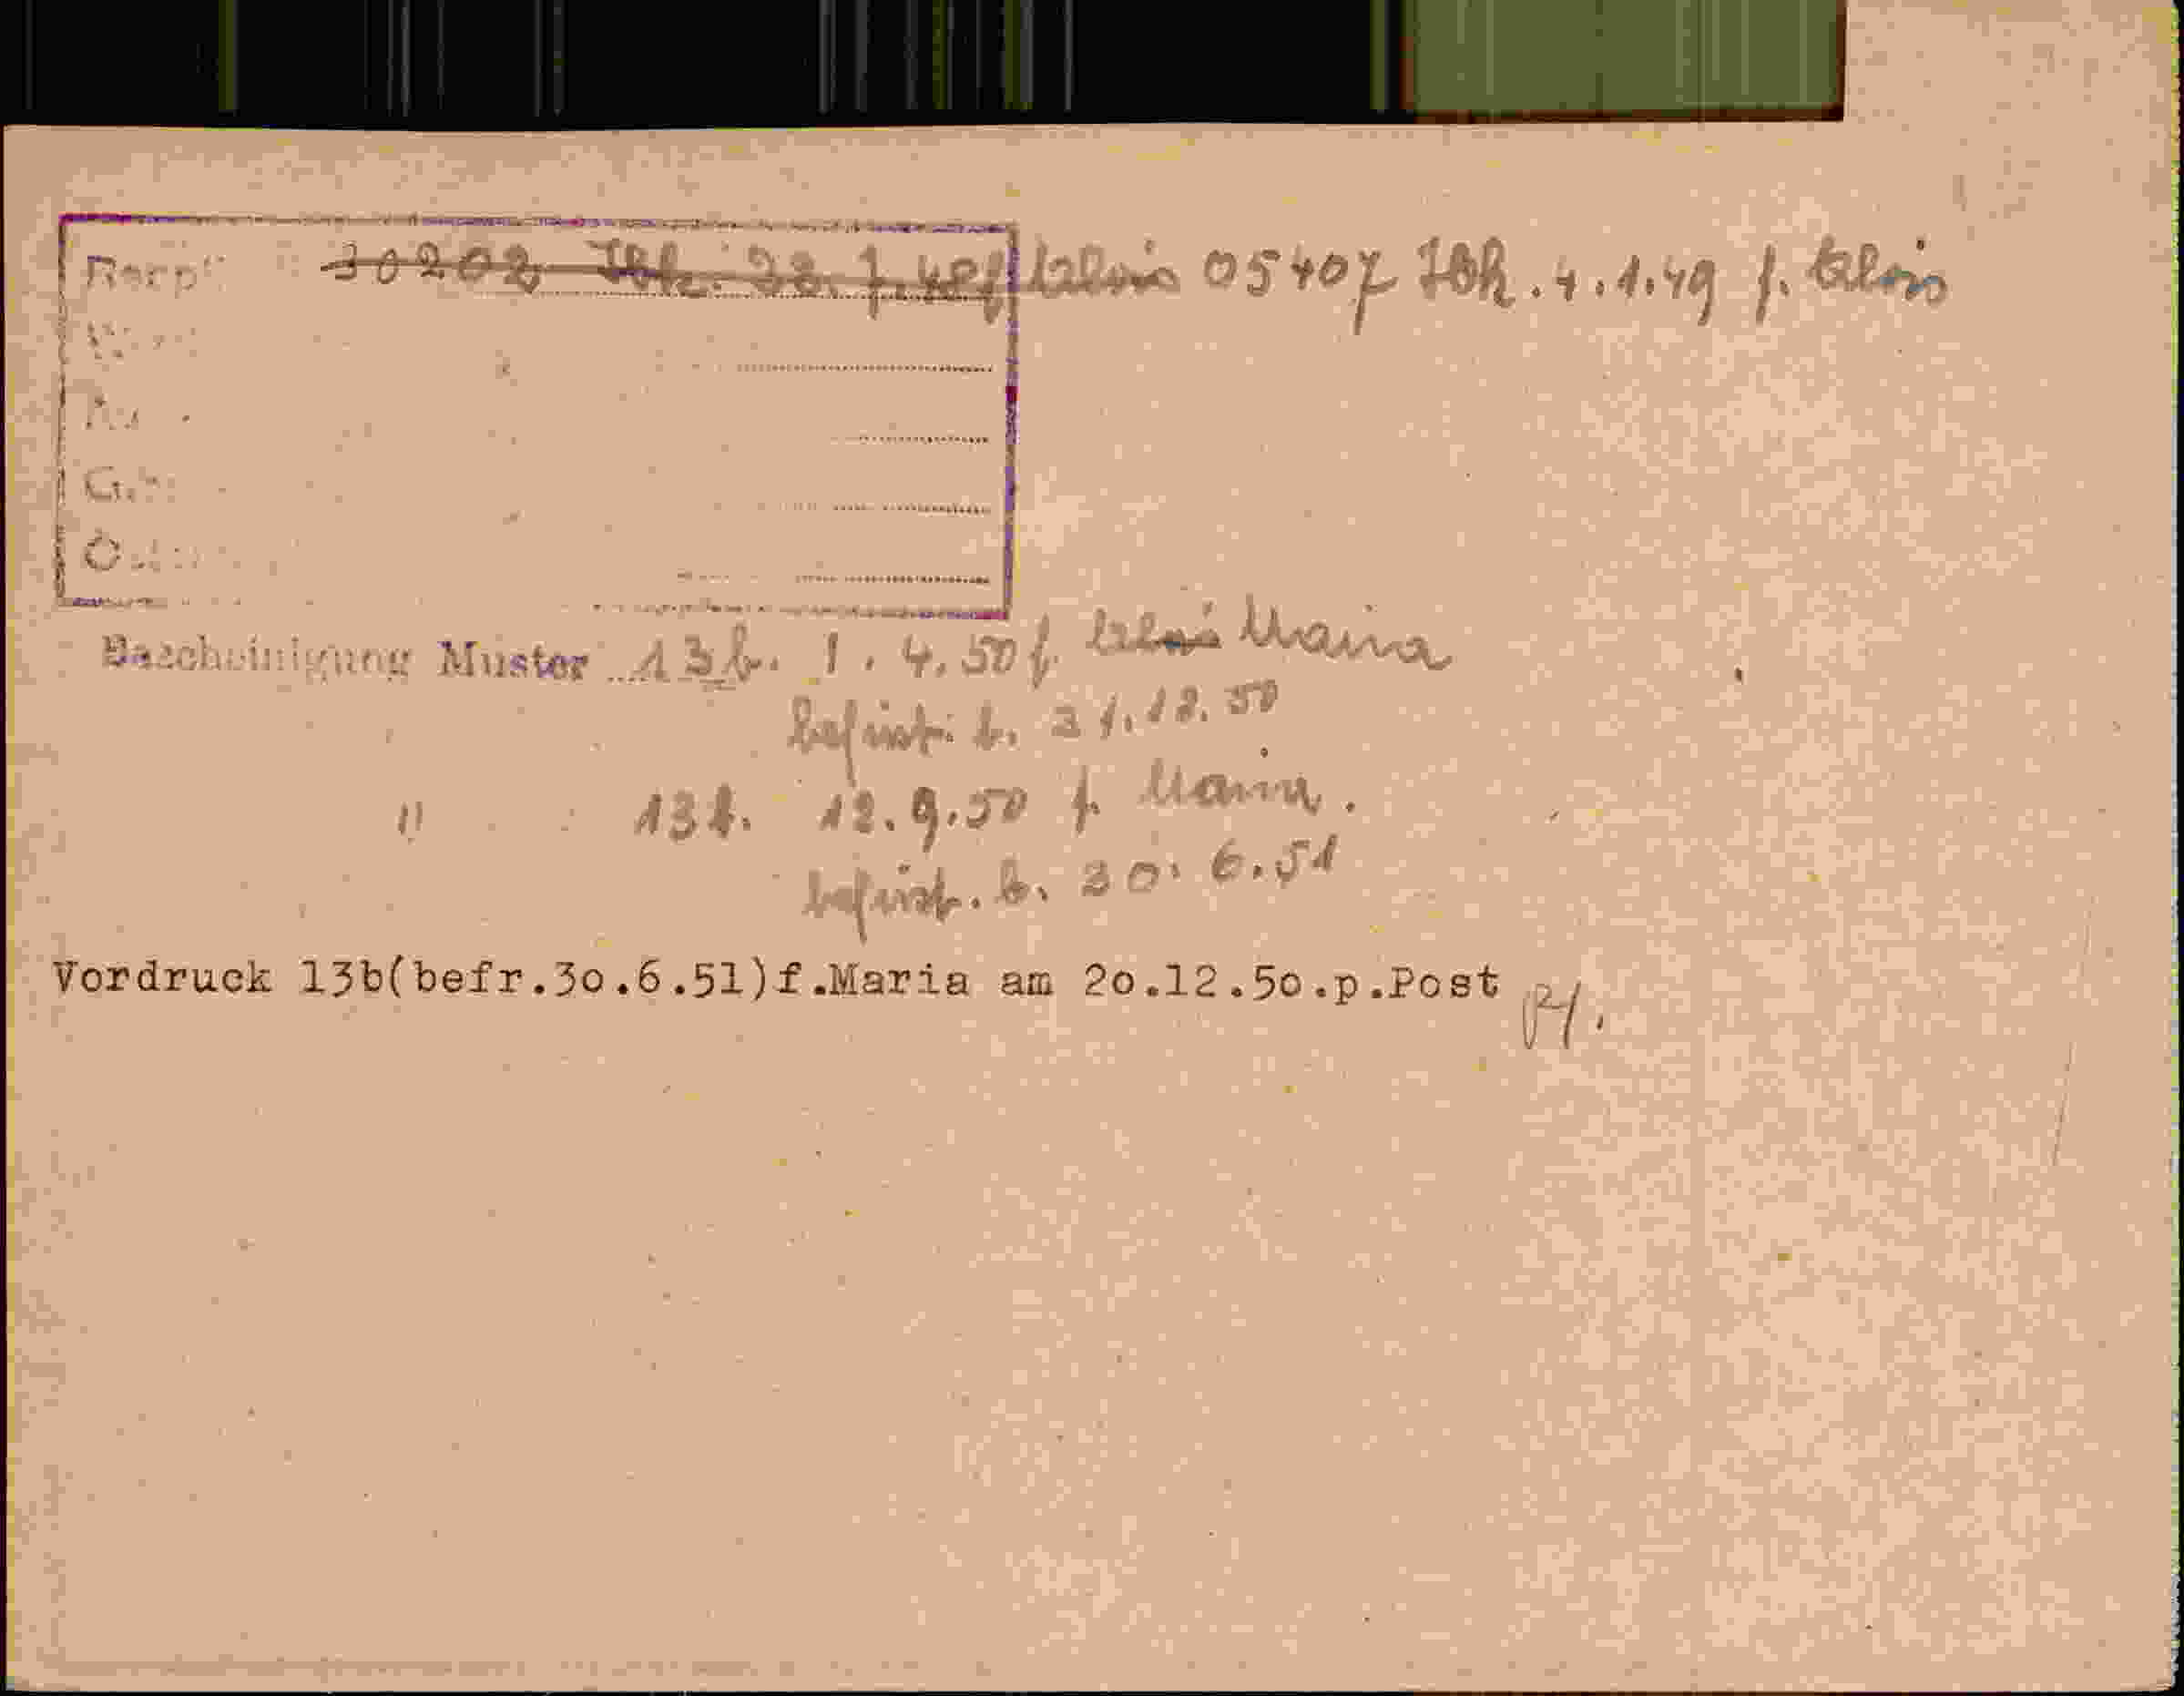 30202 Jbk. 22.7.48 f Alois 05407 Jbk. 4.1.49 f. Alois
Bescheinigung Muster 13b. 1.4.50 f. Alois Maria
befrist. b. 31.12.50
" 13b. 12.9.50 f. Maria.
befrist. b. 30.6.51
Vordruck 13b(befr.3o.6.51)f.Maria am 2o.12.5o.p.Post